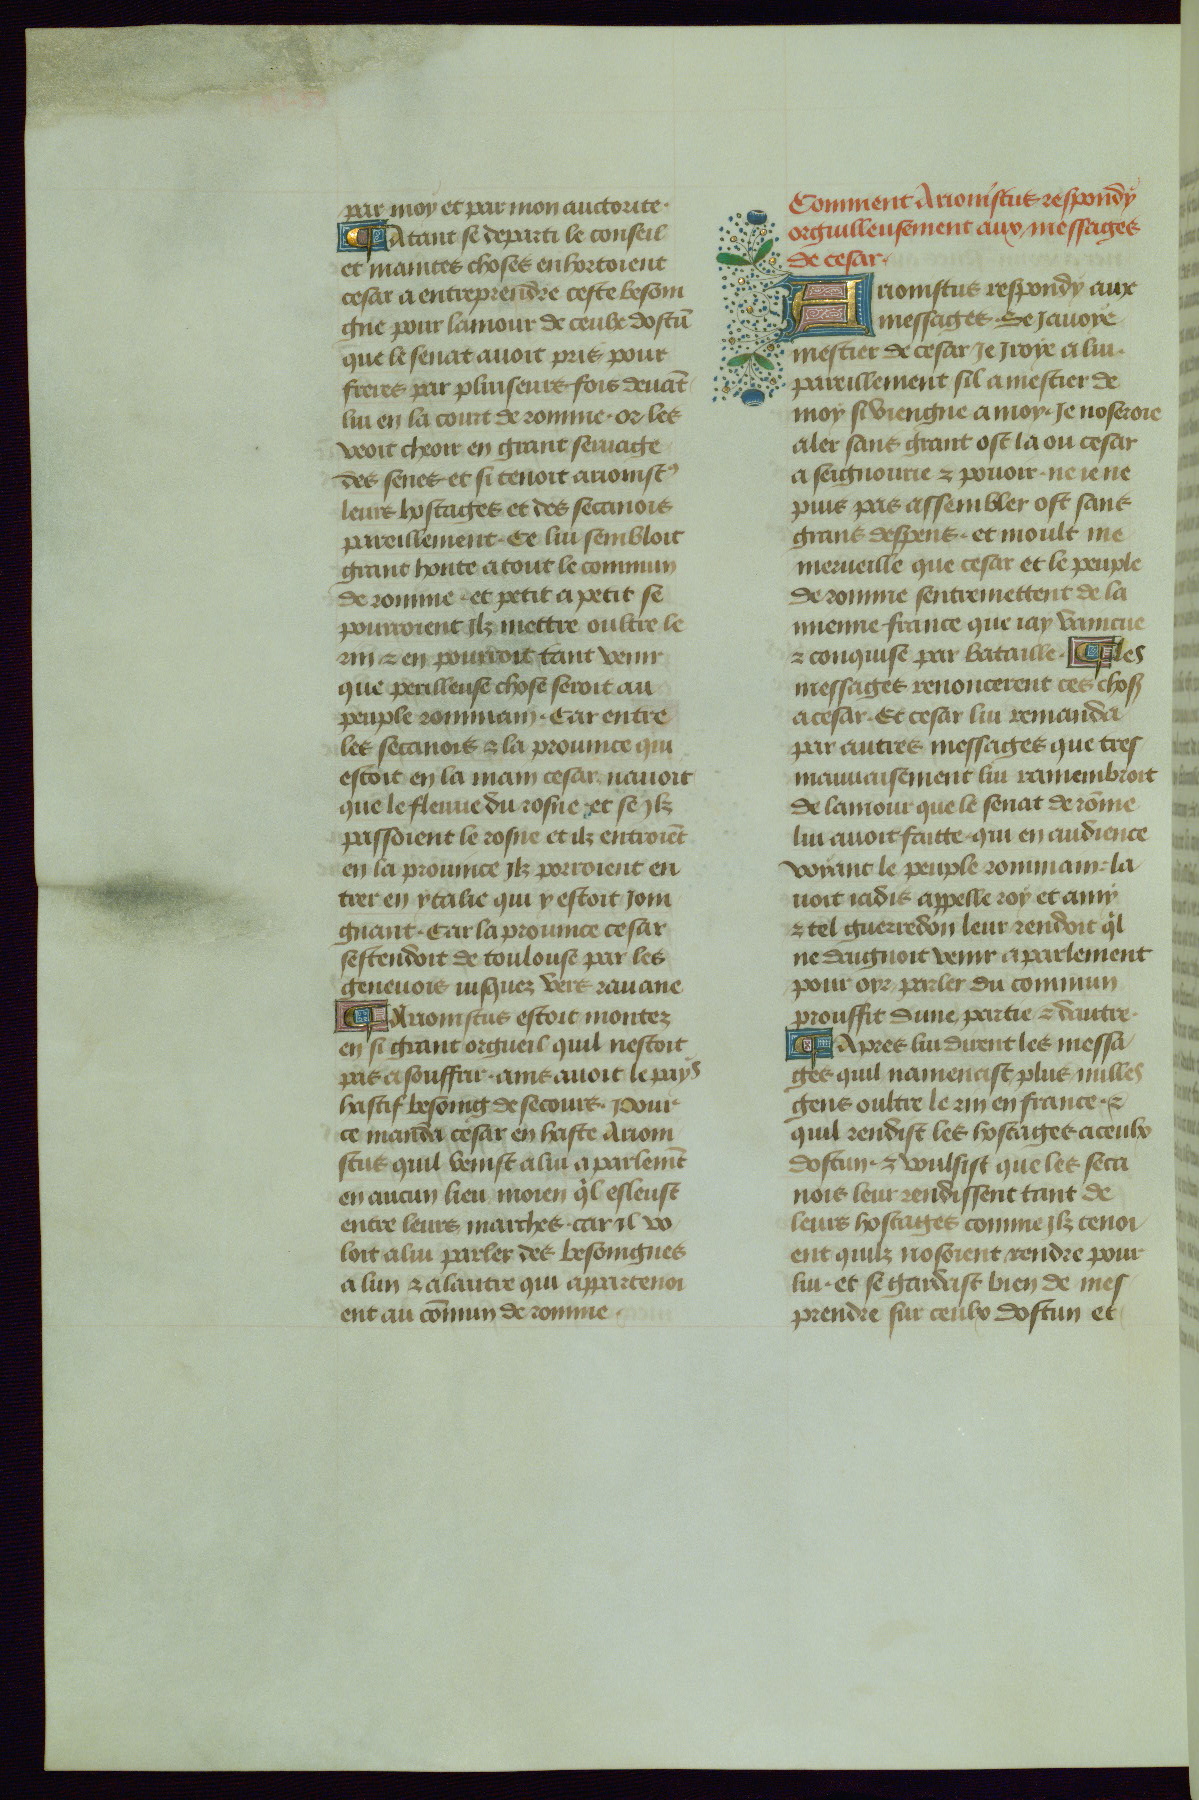 par moy et par mon auctorite.
¶ Atant se departi le conseil
et maintes choses enhortoient
cesar a entreprendre ceste besoin
gne pour lamour de ceulx dostū
que le senat auoit pris pour
freres par pluiseurs fois deuāt
lui en la court de romme. or les
veoit cheoir en grant seruage
des senes et si tenoit arionist⁹
leurs hostages et des secanois
pareillement. Ce lui sembloit
grant honte a tout le commun
de romme. et petit a petit se
pourroient jlz mettre oultre le
rin ⁊ en pourroit tant venir
que perilleuse chose seroit au
peuple rommain. Car entre
les secanois ⁊ la prouince qui
estoit en la main cesar nauoit
que le fleuue du rosne et se jlz
passoient le rosne et ilz entroiēt
en la prouince jlz porroient en
trer en ytalie qui y estoit join
gnant. Car la prouince cesar
sestendoit de toulouse par les
geneuois iusquez vers rauane
¶ Arionistus estoit montez
en si grant orgueil quil nestoit
pas a souffrir. ains auoit le pays
hastif besoing de secours. Pour
ce manda cesar en haste Arioni
stus quil venist a lui a parlemēt
en aucun lieu moien q̄l esleust
entre leurs marches. car il vo
loit a lui parler des besoingnes
a lun ⁊ a lautre qui appartenoi
ent au cōmun de romme
Comment Arionistus respondy
orguilleusement aux messages
de cesar.
Arionistus respondy aux
messages. Se jauoye
mestier de cesar je jroye a lui.
pareillement sil a mestier de
moy si viengne a moy. Je noseroie
aler sans grant ost la ou cesar
a seignourie ⁊ pouoir. ne ie ne
puis pas assembler ost sans
grans despens. et moult me
merueille que cesar et le peuple
de romme sentremettent de la
mienne france que iay vaincue
⁊ conquise par bataille. ¶ les
messages renoncerent ces chos
a cesar. Et cesar lui remanda
par autres messages que tres
mauuaisement lui ramembroit
de lamour que le senat de rōme
lui auoit faitte. qui en audience
voyant le peuple rommain la
uoit iadis appelle roy et amy
⁊ tel guerredon leur rendoit q̄l
ne daignoit venir a parlement
pour oyr parler du commun
prouffit dune partie ⁊ dautre.
¶ Apres lui dirent les messa
ges quil namenast plus nulles
gens oultre le rin en france. ⁊
quil rendist les hostages a ceulx
dostun. ⁊ voulsist que les seca
nois leur rendissent tant de
leurs hostages comme jlz tenoi
ent quilz nosoient rendre pour
lui. et se gardast bien de mes
prendre sur ceulx dostun et